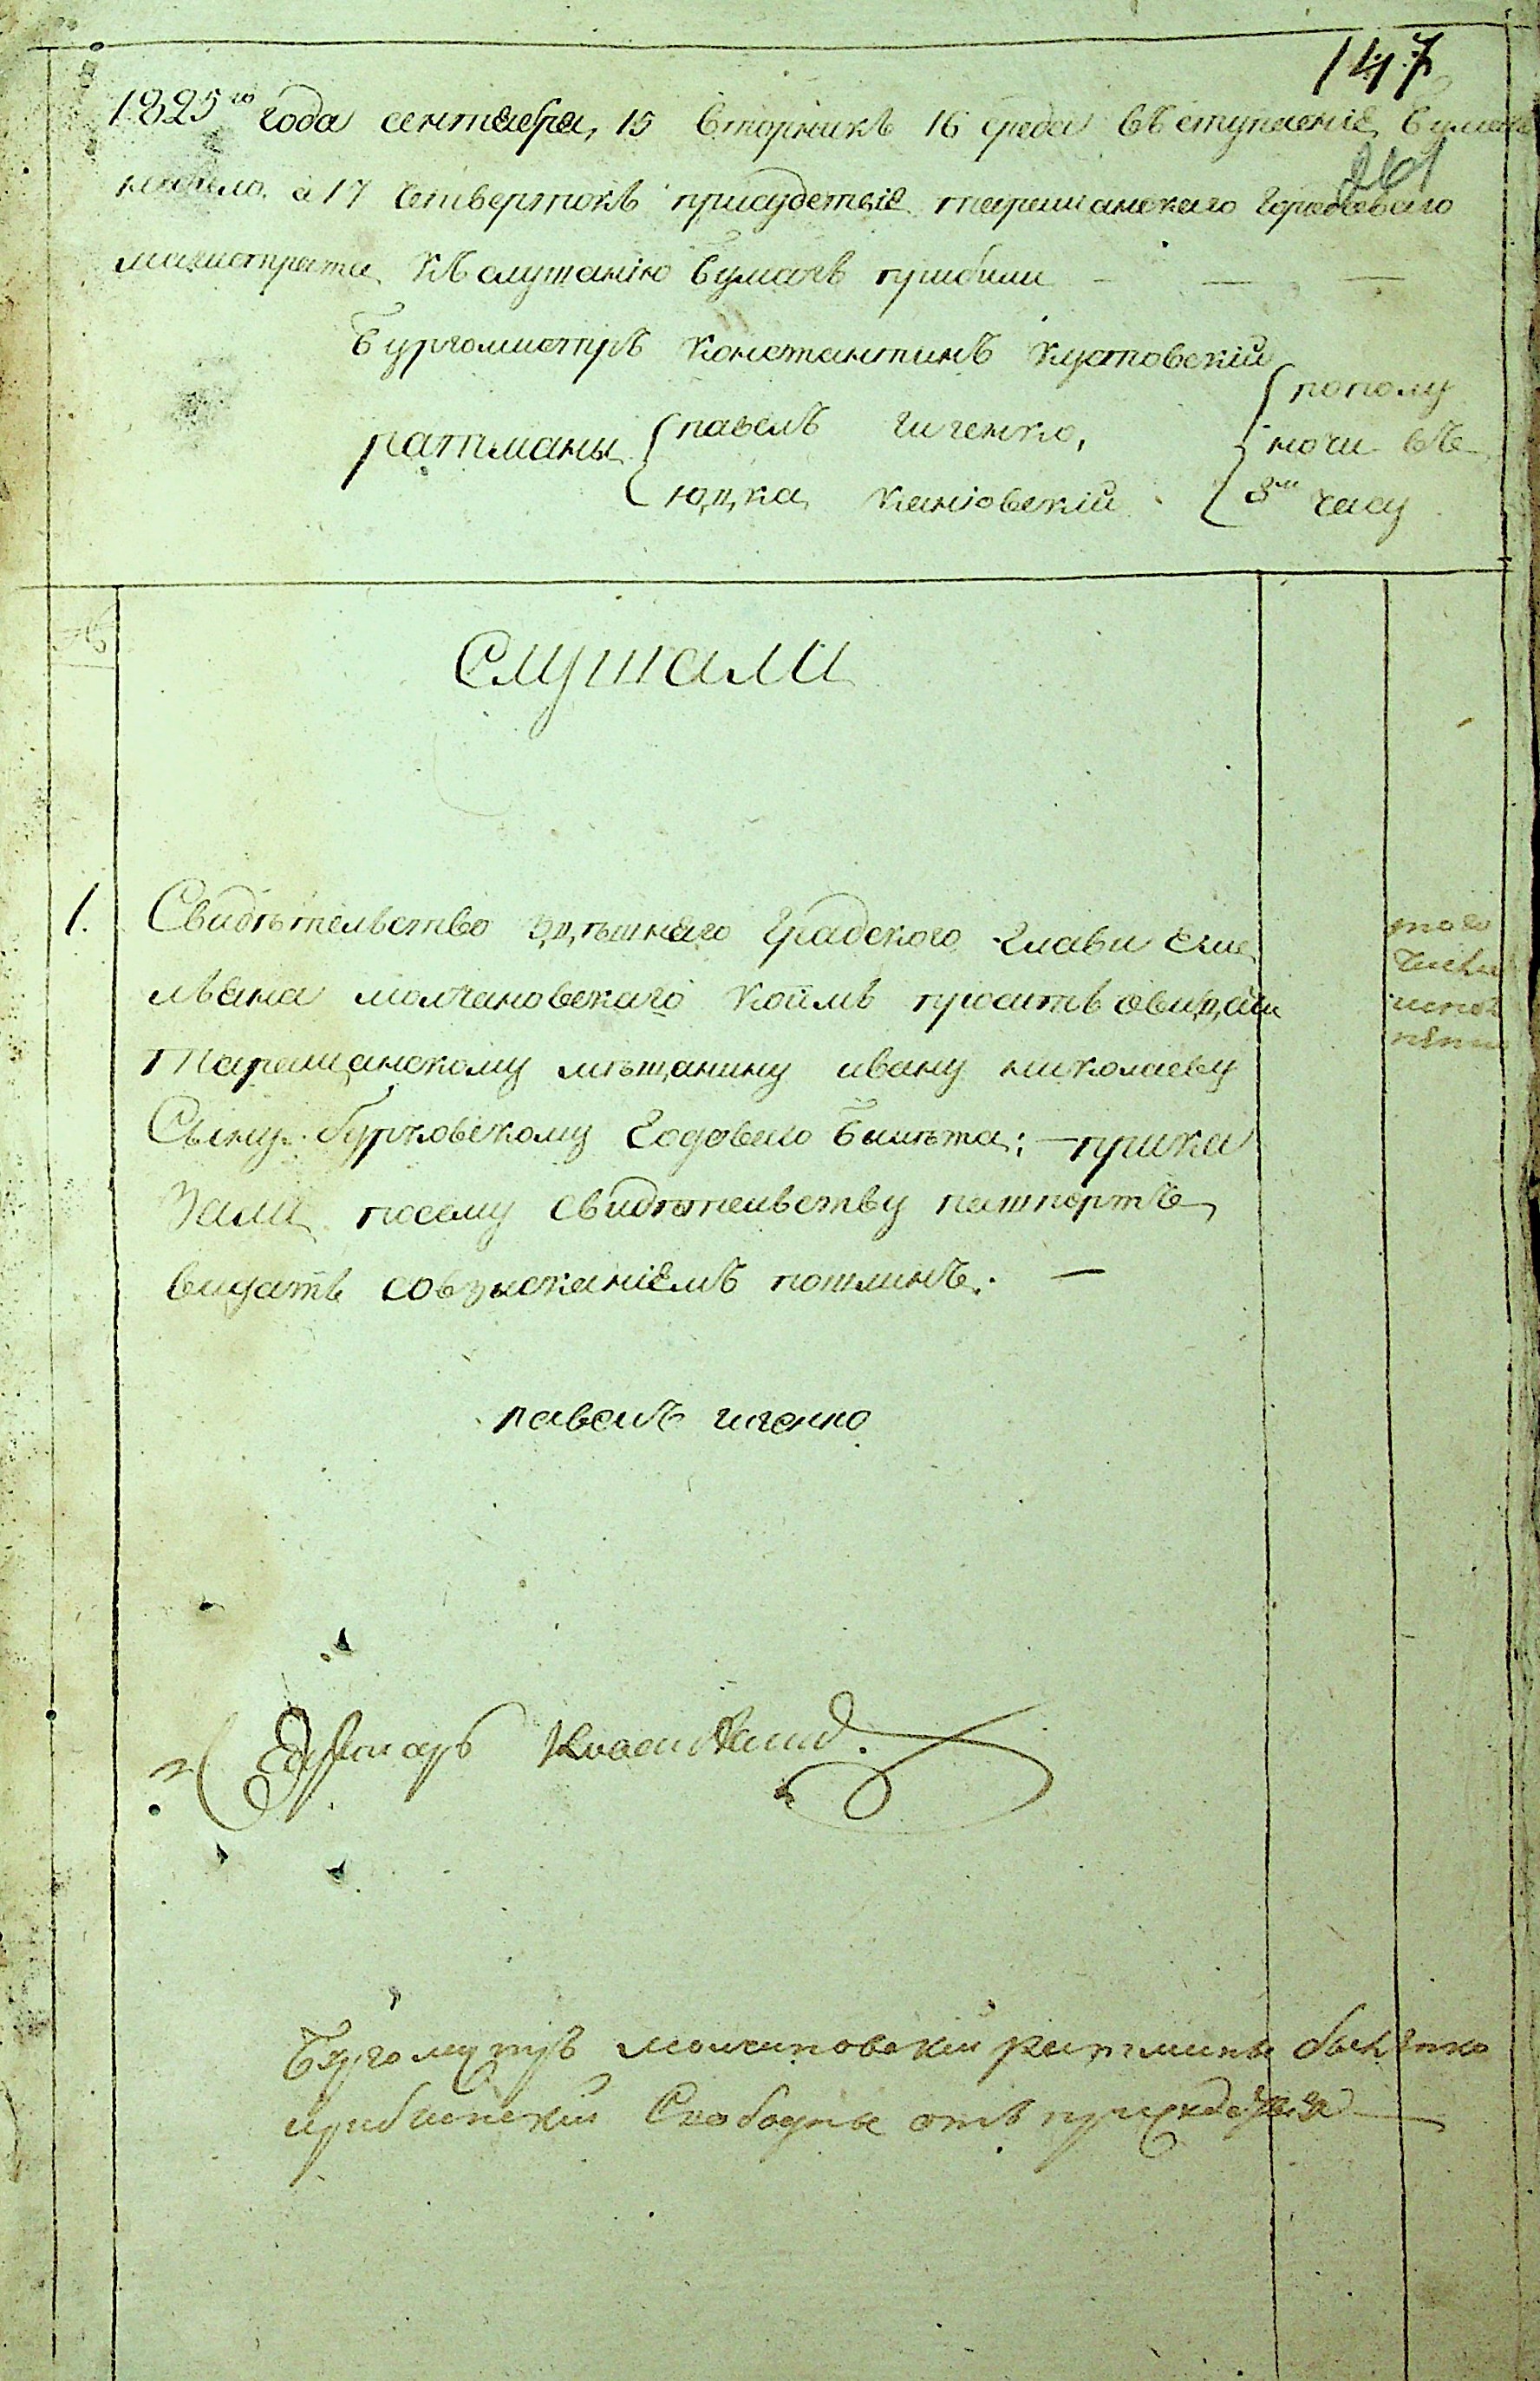 147
261
1825го года сентября, 15 вторникъ 16 среда въ ступленіе бумагъ
небыло. а 17 четвертокъ присудствіе таращанского городоваго
магистрата къ слушанію бумагъ прибили
Бургомистръ Константинъ
ратманы павелъ гиченко,
юдка каніовскій
пополу
ночи въ
3м часу
№
Слушали
1. Свидѣтельство здѣшнаго градского глави еме
льяна молчановскаго коимъ проситъ овидачи
Таращанскому мѣщанину ивану николаеву
Сыну бурковскому годоваго билѣта: — прика
зали посему свидѣтельству пашпортъ
видать совзысканіемъ пошлинъ. —
того
числа
испол
нено
павелъ гиченко
Секретарь
Бургомистръ молчановскій ратмани
Свободны отъ